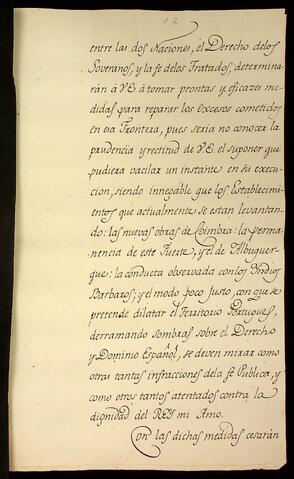 17
entre las dos Naciones, el Derecho delos
Soveranos, y la fe delos Tratados, determina-
rán á V.E. á tomar prontas, y eficazes me-
didas para reparar los excesos cometidos
en esa Frontera, pues seria no conocer la
prudencia y rectitud de V.E. el suponer que
pudiera vacilar un instante en su execu-
cion, siendo innegable que los Establecimi-
entos que actualmente se estan levantan-
do: las nuevas obras de Coimbra: la perma-
nencia de este Fuerte, y el de Albuquer-
que: la conducta observada con los Yndios
Barbaros; y el modo poco justo, con que se
pretende dilatar el Territorio Portugues,
derramando sombras sobre el Derecho
y Dominio Español, se deven mirar como
otras tantas infracciones dela fé Publica, y
como otros tantos atentados contra la
dignidad del REY mi Amo.
Con las dichas medidas cesarán